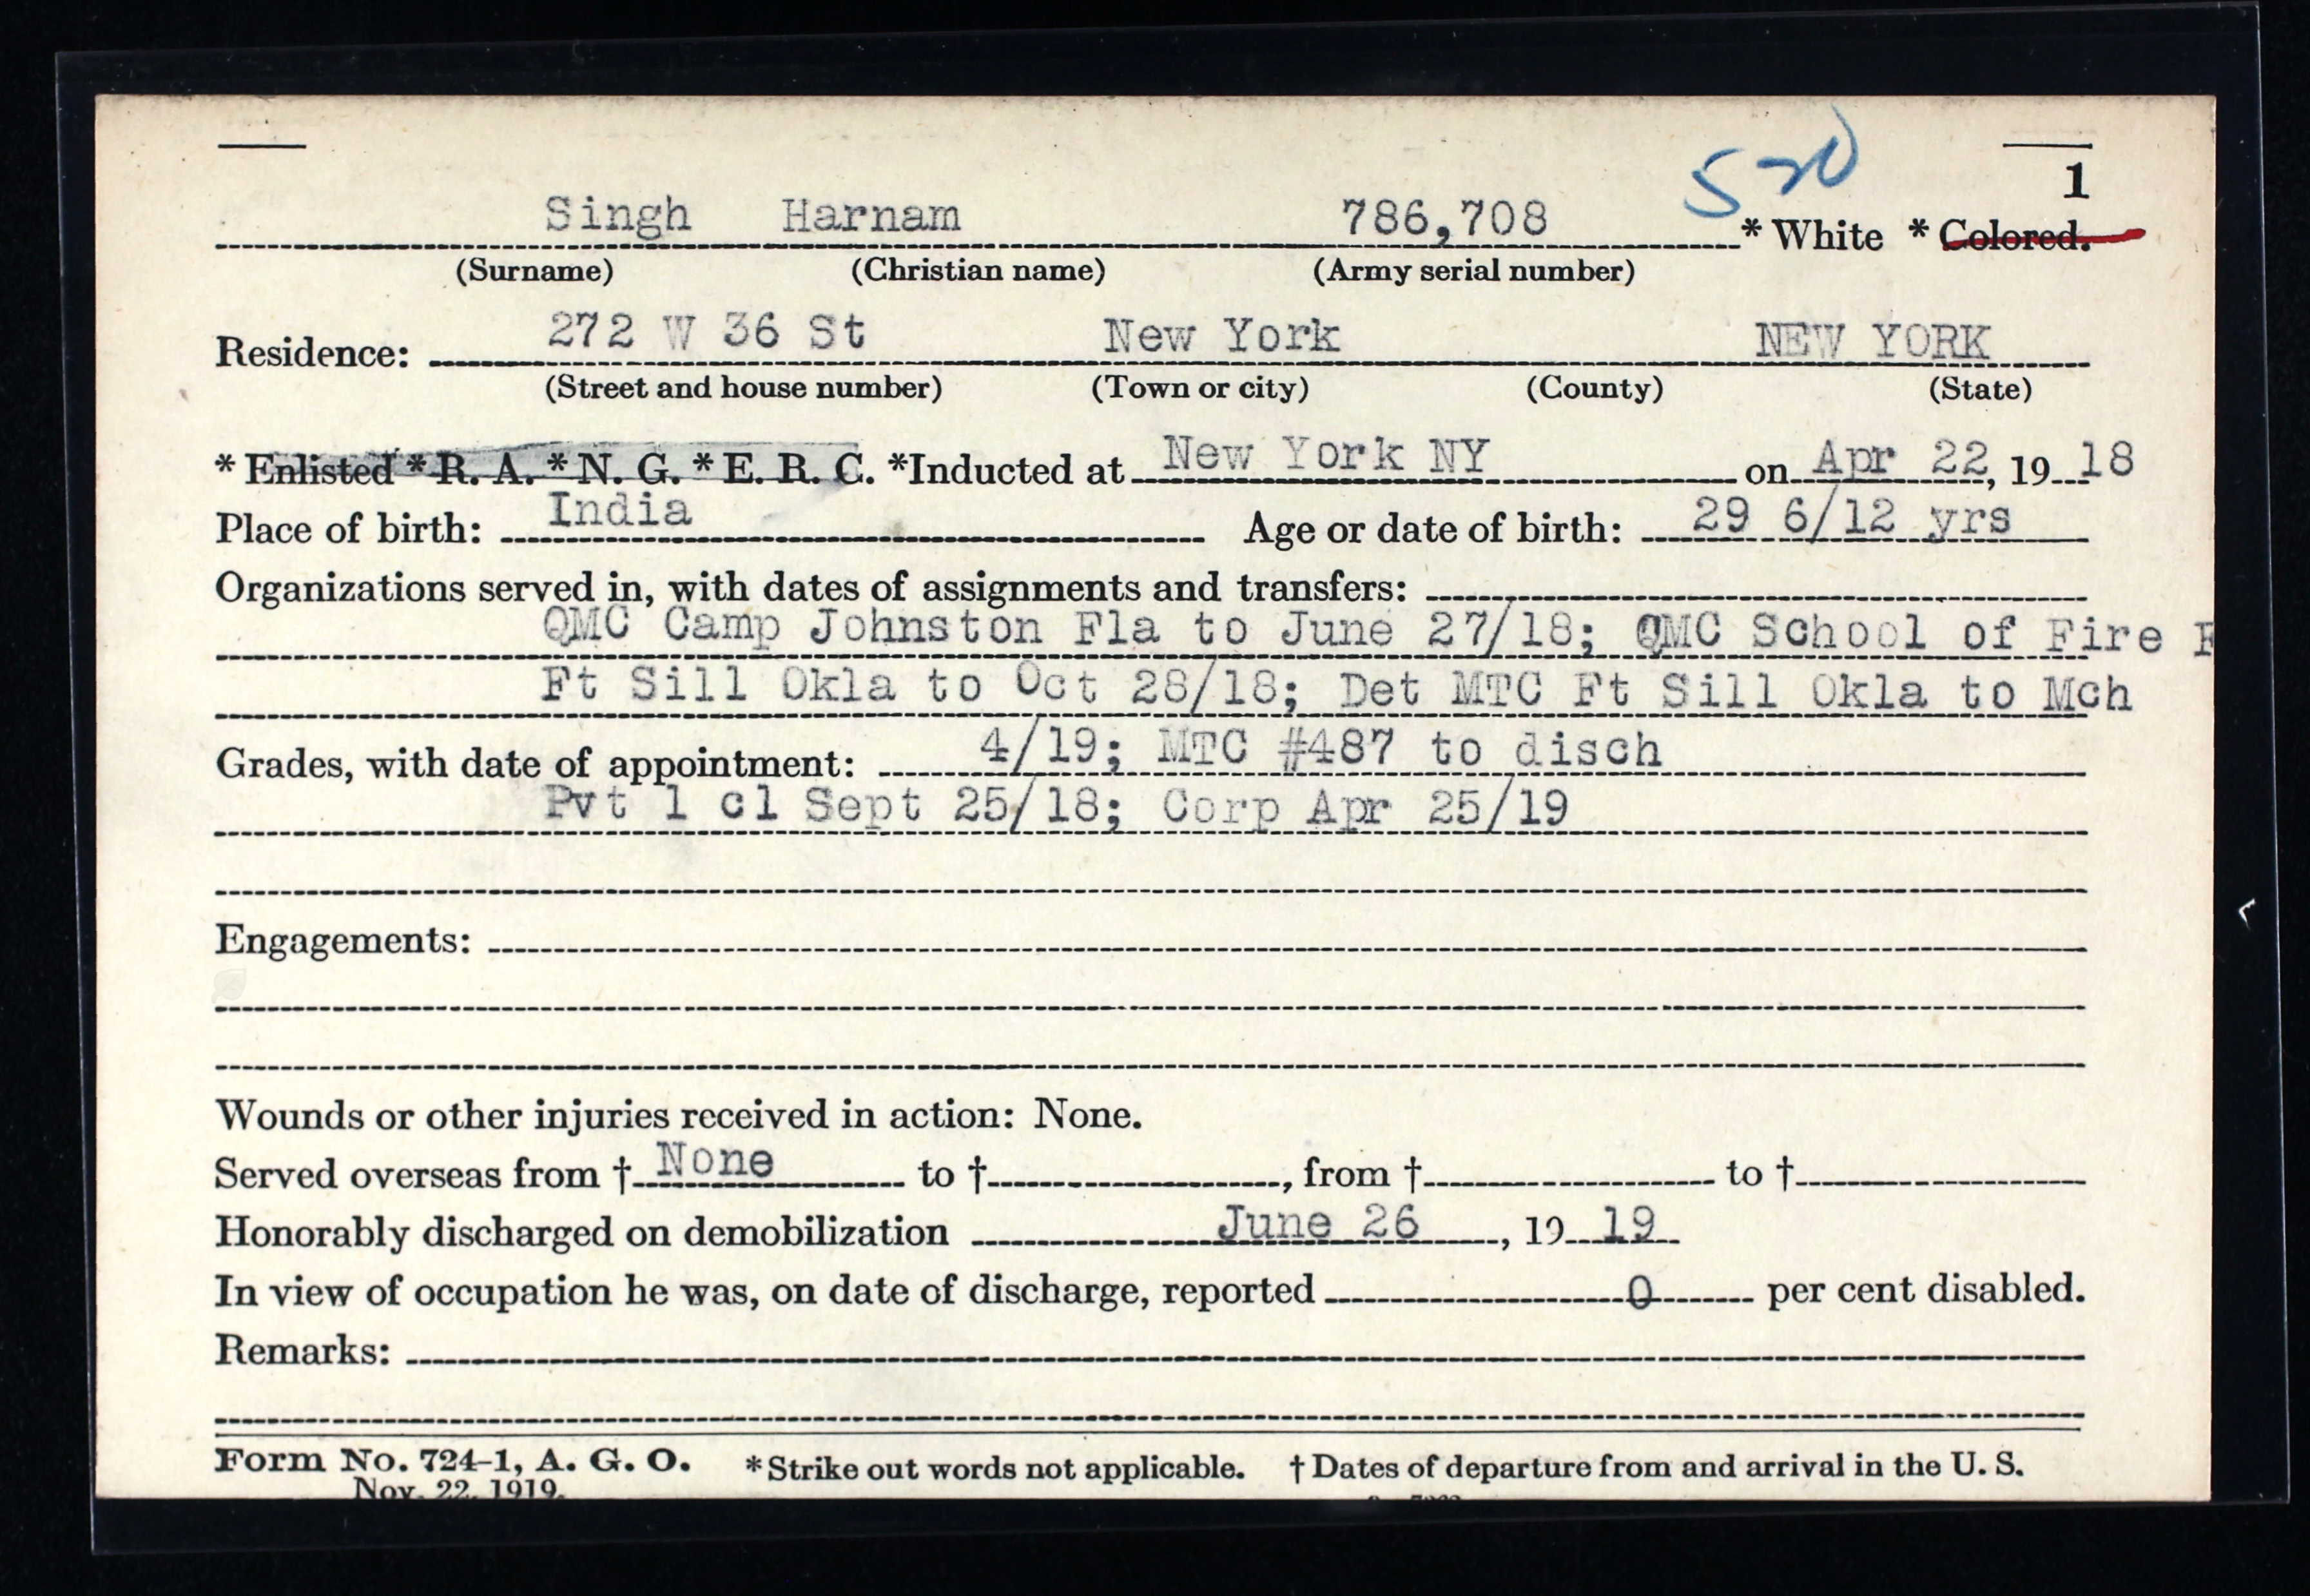 1
Singh Harnam 786,708 * White * Colored.
(Surname) (Christian name) (Army serial number)
272 W 36 St New York NEW YORK
Residence:
(Street and house number) (Town or city) (County) (State)
* Enlisted * R. A. * N. G. * E. R. C. *Inducted at New York NY on Apr 22, 19 18
Place of birth: India Age or date of birth: 29 6/12 yrs
Organizations served in, with dates of assignments and transfers:
QMC Camp Johnston Fla to June 27/18; QMC School of Fire F
Ft Sill Okla to Oct 28/18; Det MTC Ft Sill Okla to Mch
Grades, with date of appointment: 4/19; MTC #487 to disch
Pvt 1 cl Sept 25/18; Corp Apr 25/19
Engagements:
Wounds or other injuries received in action: None.
Served overseas from † None to † , from † to †
Honorably discharged on demobilization June 26 , 19 19
In view of occupation he was, on date of discharge, reported 0 per cent disabled.
Remarks:
Form No. 724-1, A. G. O. * Strike out words not applicable. † Dates of departure from and arrival in the U. S.
Nov. 22, 1919.